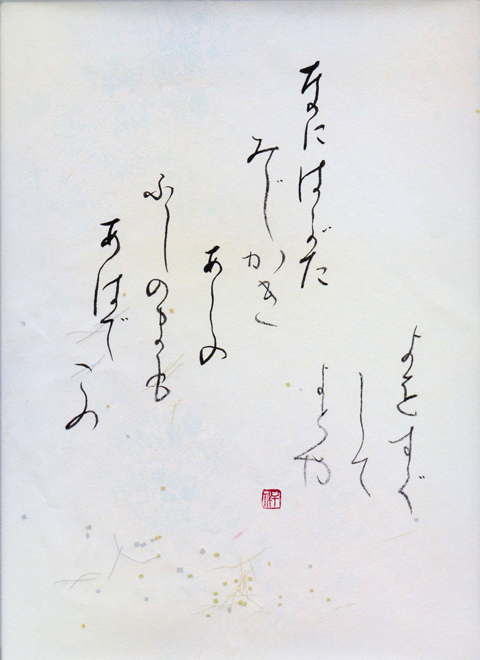 なにはがた
みじかき
あしの
ふしのまも
あはでこの
よをすぐ
して
よとや